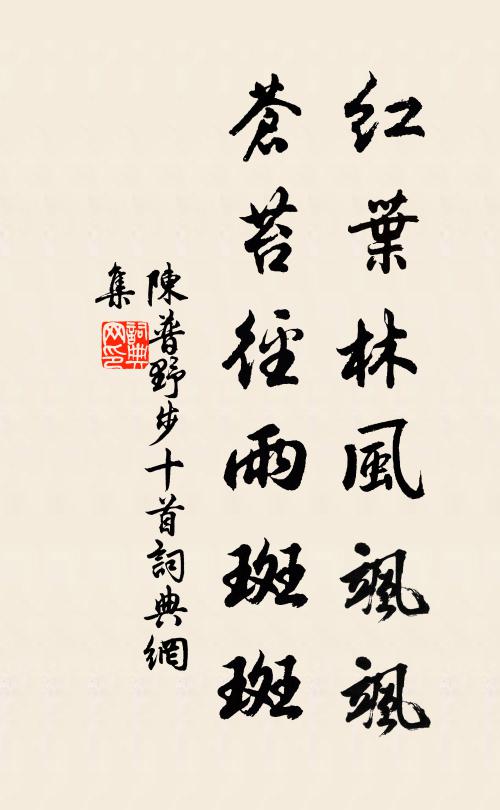 紅葉林風颯颯
蒼苔徑雨斑斑
陳普野步十首詞典網
集
詞典
网印